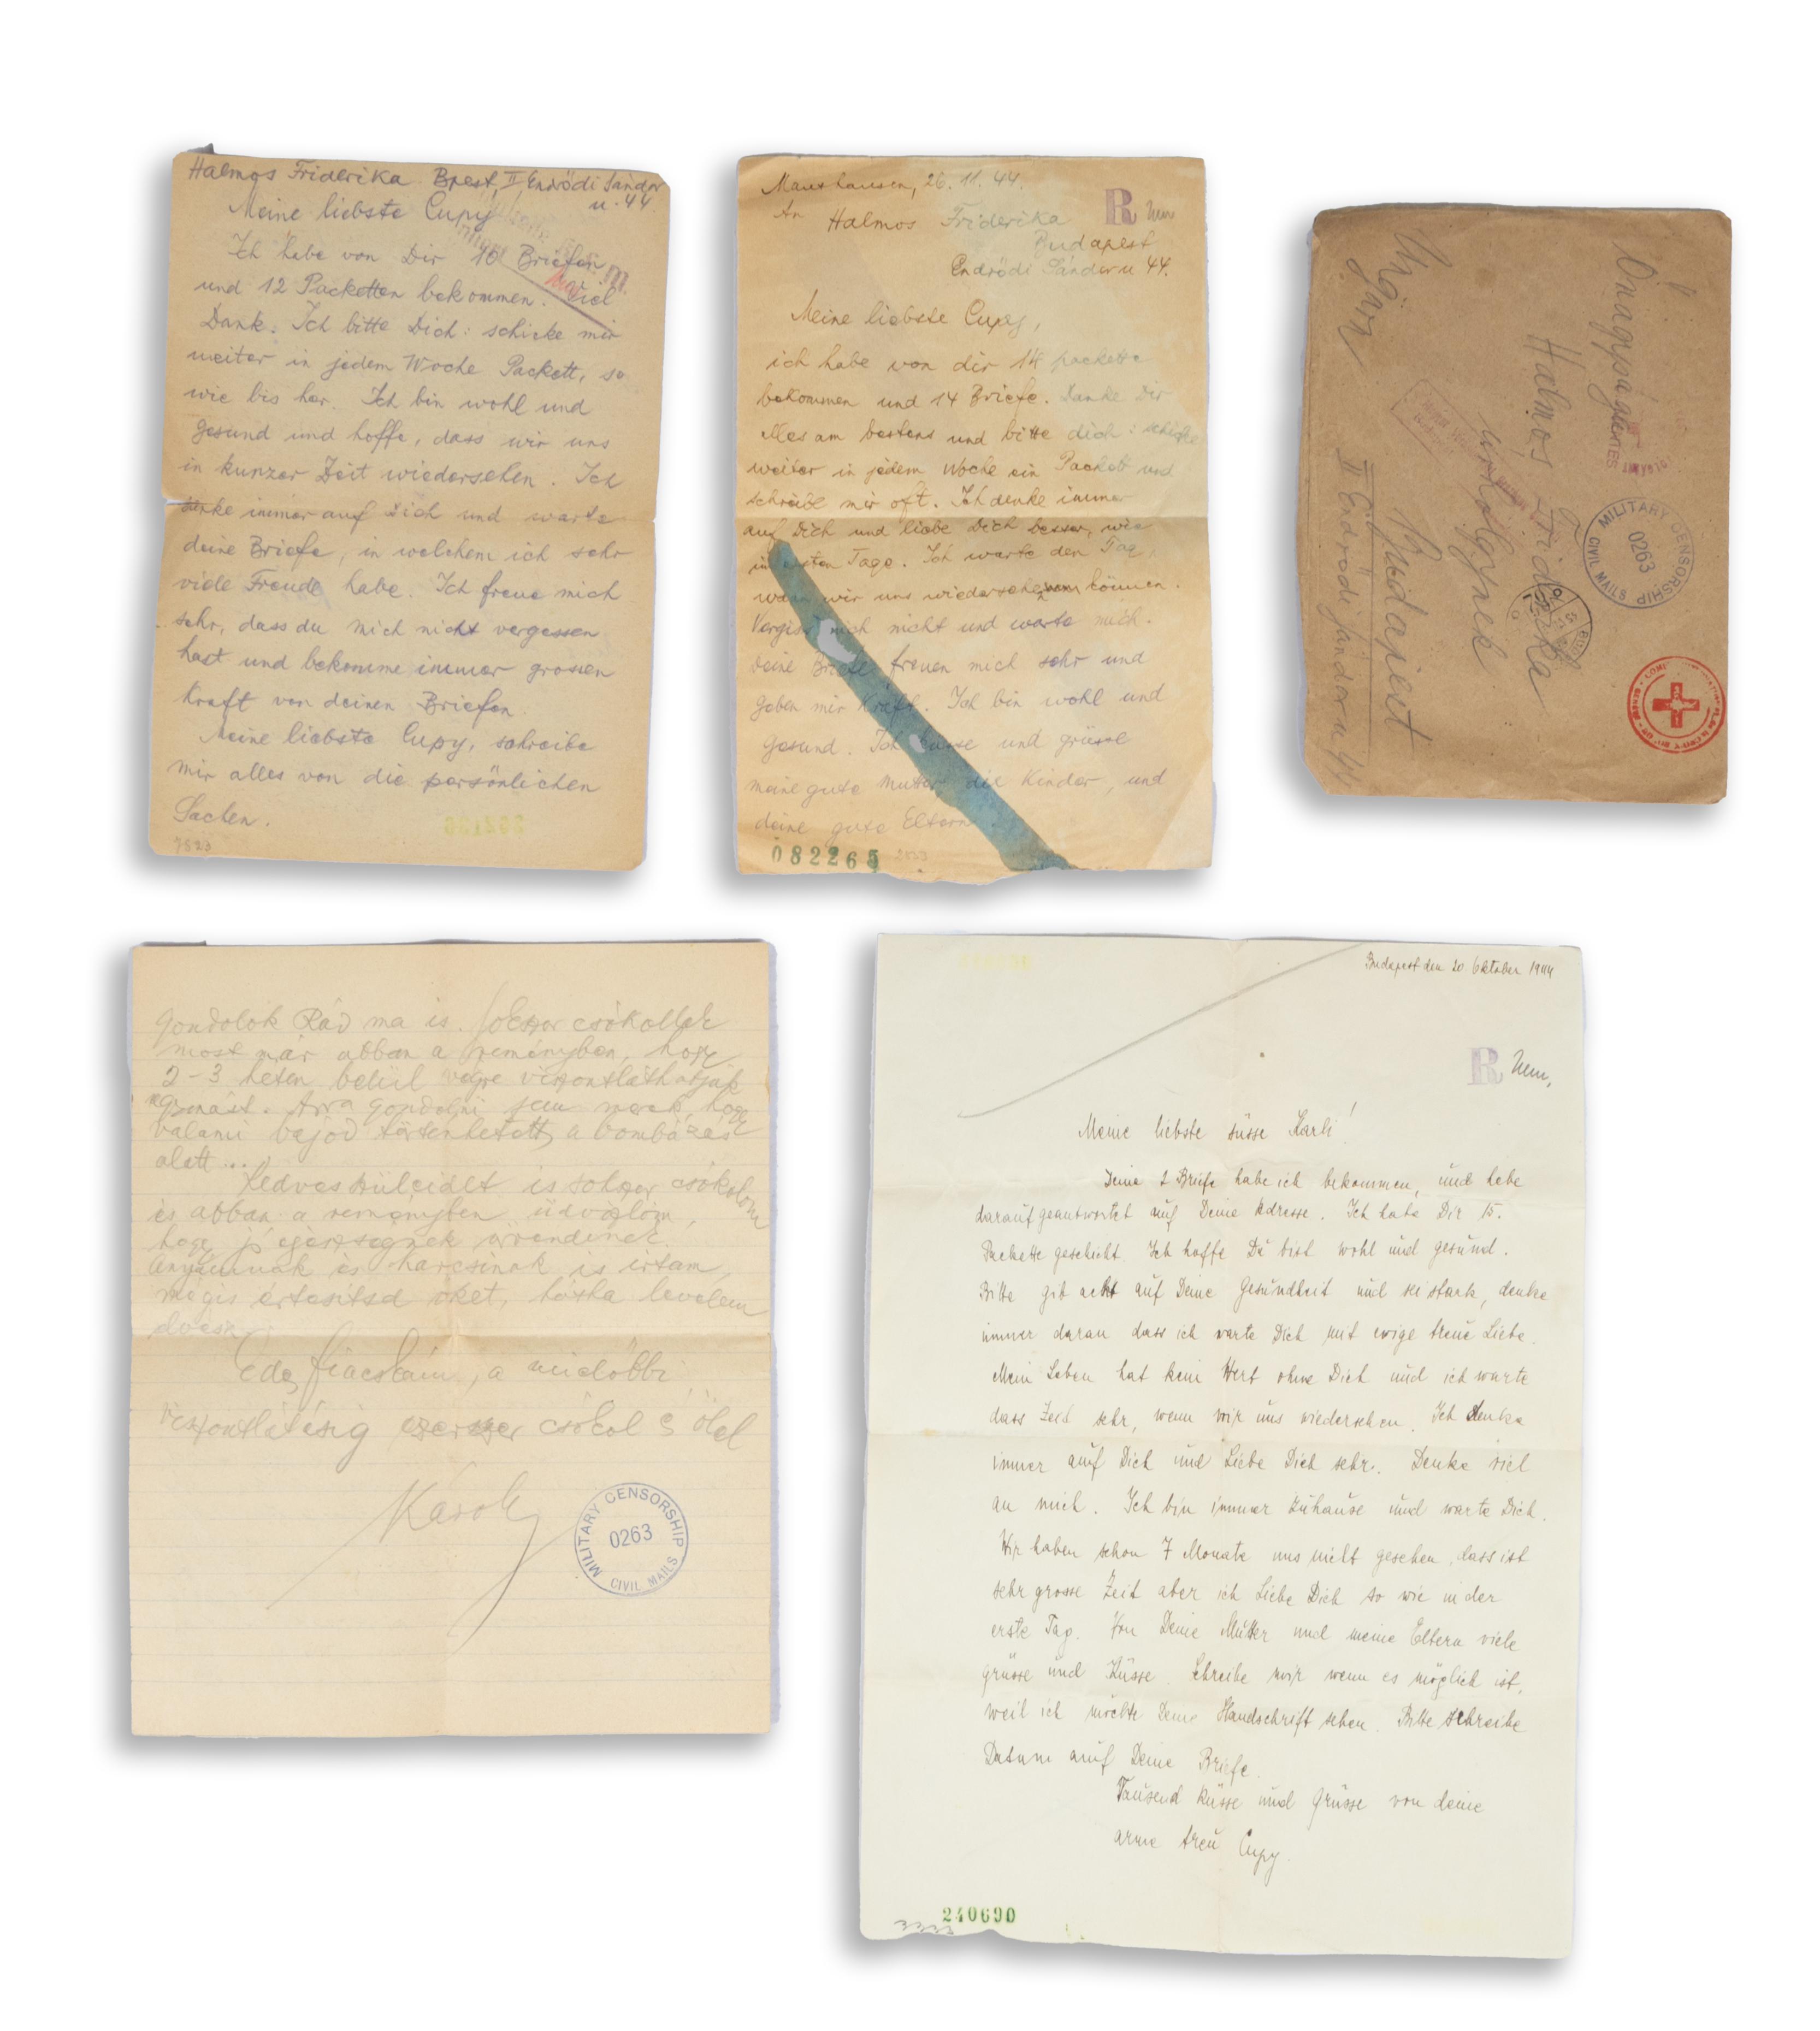 Halmos Friderika. Bpest, II Endrödi Sándor
u. 44
Meine liebste Cupy!
Ich habe von Dir 10 Briefen
und 12 Packetten bekommen. Viel
Dank. Ich bitte Dich: schicke mir
weiter in jedem Woche Packett, so
wie bis her. Ich bin wohl und
gesund und hoffe, dass wir uns
in kurzer Zeit wiedersehen. Ich
denke immer auf Dich und warte
deine Briefe, in welchem ich sehr
viele Freude habe. Ich freue mich
sehr, dass du mich nicht vergessen
hast und bekomme immer grossen
Kraft von deinen Briefen.
Meine liebste Cupy, schreibe
mir alles von die persönlichen
Sachen.
7523
Mauthausen, 26. 11. 44.
An Halmos Friderika
R
Budapest
Endrödi Sándor u 44.
Meine liebste Cupy,
ich habe von dir 14 packette
bekommen und 14 Briefe. Danke Dir
alles am bestens und bitte dich: schicke
weiter in jedem Woche ein Packett und
schreibe mir oft. Ich denke immer
auf Dich und liebe Dich besser, wie
im ersten Tage. Ich warte den Tag,
wann wir uns wiedersehen können.
Vergiss mich nicht und warte mich.
Deine Briefe freuen mich sehr und
geben mir Kraft. Ich bin wohl und
gesund. Ich küsse und grüsse
meine gute Mutter die Kinder, und
deine gute Eltern
082265
Halmos Friderika
úrhölgynek
Budapest
II Endrödi Sándor u 44
MILITARY CENSORSHIP
0263
CIVIL MAILS
gondolok Rád ma is. Sokszor csókollak
most már abban a reményben, hogy
2-3 héten belül végre viszontláthatjuk
egymást. Arra gondolni sem merek, hogy
valami bajod történhetett a bombázás
alatt...
Kedves szüleidet is sokszor csókolom
és abban a reményben üdvözlöm,
hogy jó egészségnek örvendenek.
Anyámnak és Karcsinak is irtam,
mégis értesitsd őket, hátha levelem
elvész.
Édes fiacskám, a mielőbbi
viszontlátásig ezerszer csókol s ölel
Károly
MILITARY CENSORSHIP
0263
CIVIL MAILS
Budapest den 20 Oktober 1944
R
Meine liebste süsse Karli!
Deine 2 Briefe habe ich bekommen, und habe
darauf geantwortet auf Deine Adresse. Ich habe Dir 15.
Packette geschickt. Ich hoffe Du bist wohl und gesund.
Bitte gib acht auf Deine Gesundheit und sei stark, denke
immer daran dass ich warte Dich mit ewige treue Liebe.
Mein Leben hat kein Wert ohne Dich und ich warte
dass Zeit sehr, wenn wir uns wiedersehen. Ich denke
immer auf Dich und Liebe Dich sehr. Denke viel
an mich. Ich bin immer zuhause und warte Dich.
Wir haben schon 7 Monate uns nicht gesehen, dass ist
sehr grosse Zeit aber ich Liebe Dich so wie in der
erste Tag. Von Deine Mutter und meine Eltern viele
grüsse und Küsse. Schreibe mir wenn es möglich ist,
weil ich möchte Deine Handschrift sehen. Bitte schreibe
Datum auf Deine Briefe.
Tausend küsse und grüsse von deine
arme treu Cupy.
240690